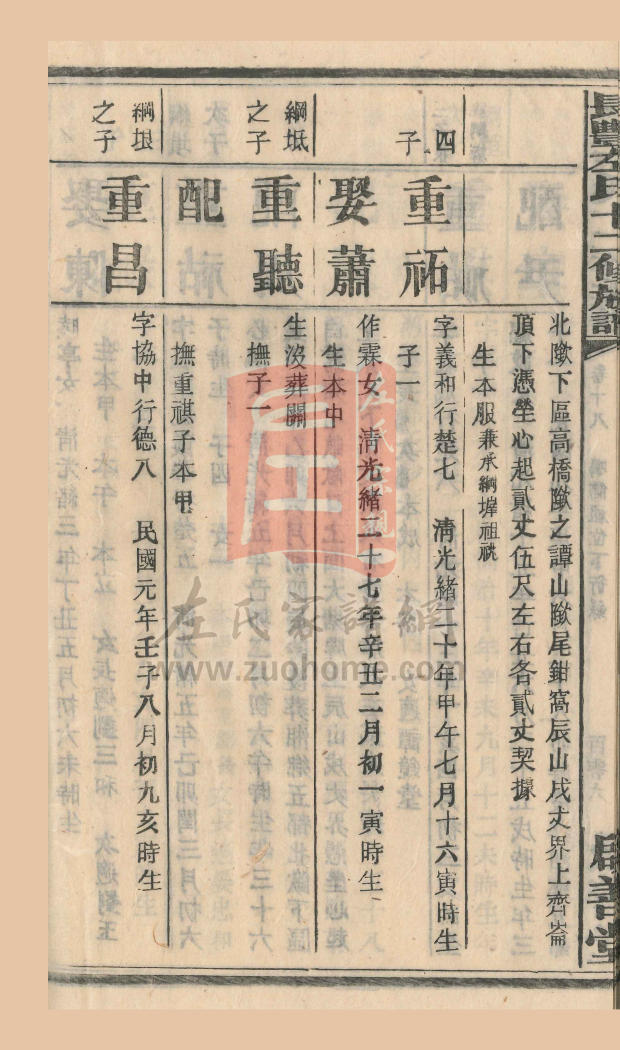 長豐左氏十二修族譜
啟善堂
北隞下區高橋隞之譚山隞尾鉗窩辰山戌丈界上齊崙
頂下憑塋心起貳丈伍尺左右各貳丈契據
生本服兼承綱墀祖祧
四
子
重祏
字義和行楚七 清光緒二十年甲午七月十六寅時生
子一
娶蕭
作霖女 清光緒二十七年辛丑二月初一寅時生
生本中
綱坻
之子
重聽
生沒葬闕
撫子一
配
撫重祺子本甲
綱垠
之子
重昌
字協中行德八 民國元年壬子八月初九亥時生
左氏家譜網
www.zuohome.com